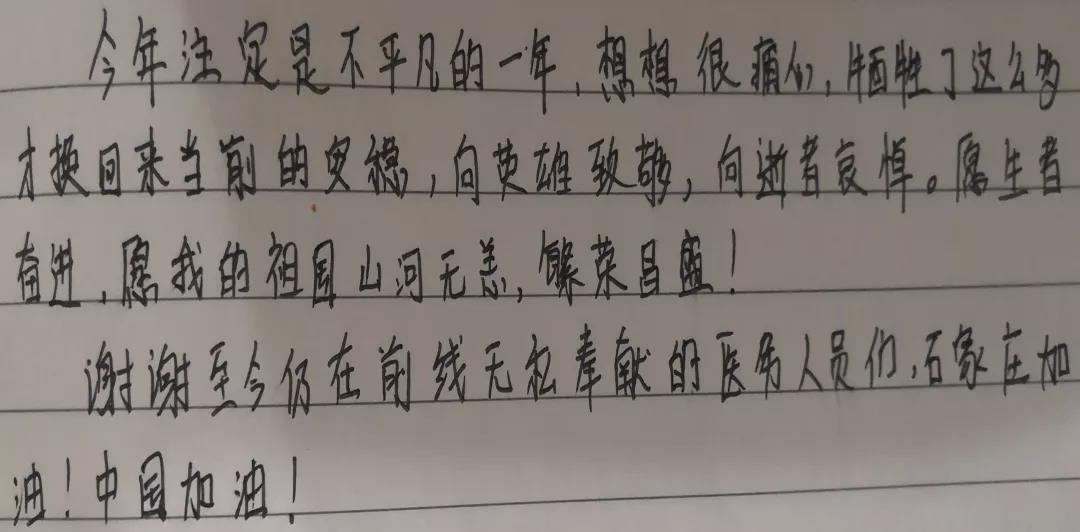 今年注定是不平凡的一年,想想很痛心,牺牲了这么多
才换回来当前的安稳,向英雄致敬,向逝者哀悼。愿生者
奋进,愿我的祖国山河无恙,繁荣昌盛!
谢谢至今仍在前线无私奉献的医务人员们,石家庄加
油!中国加油!